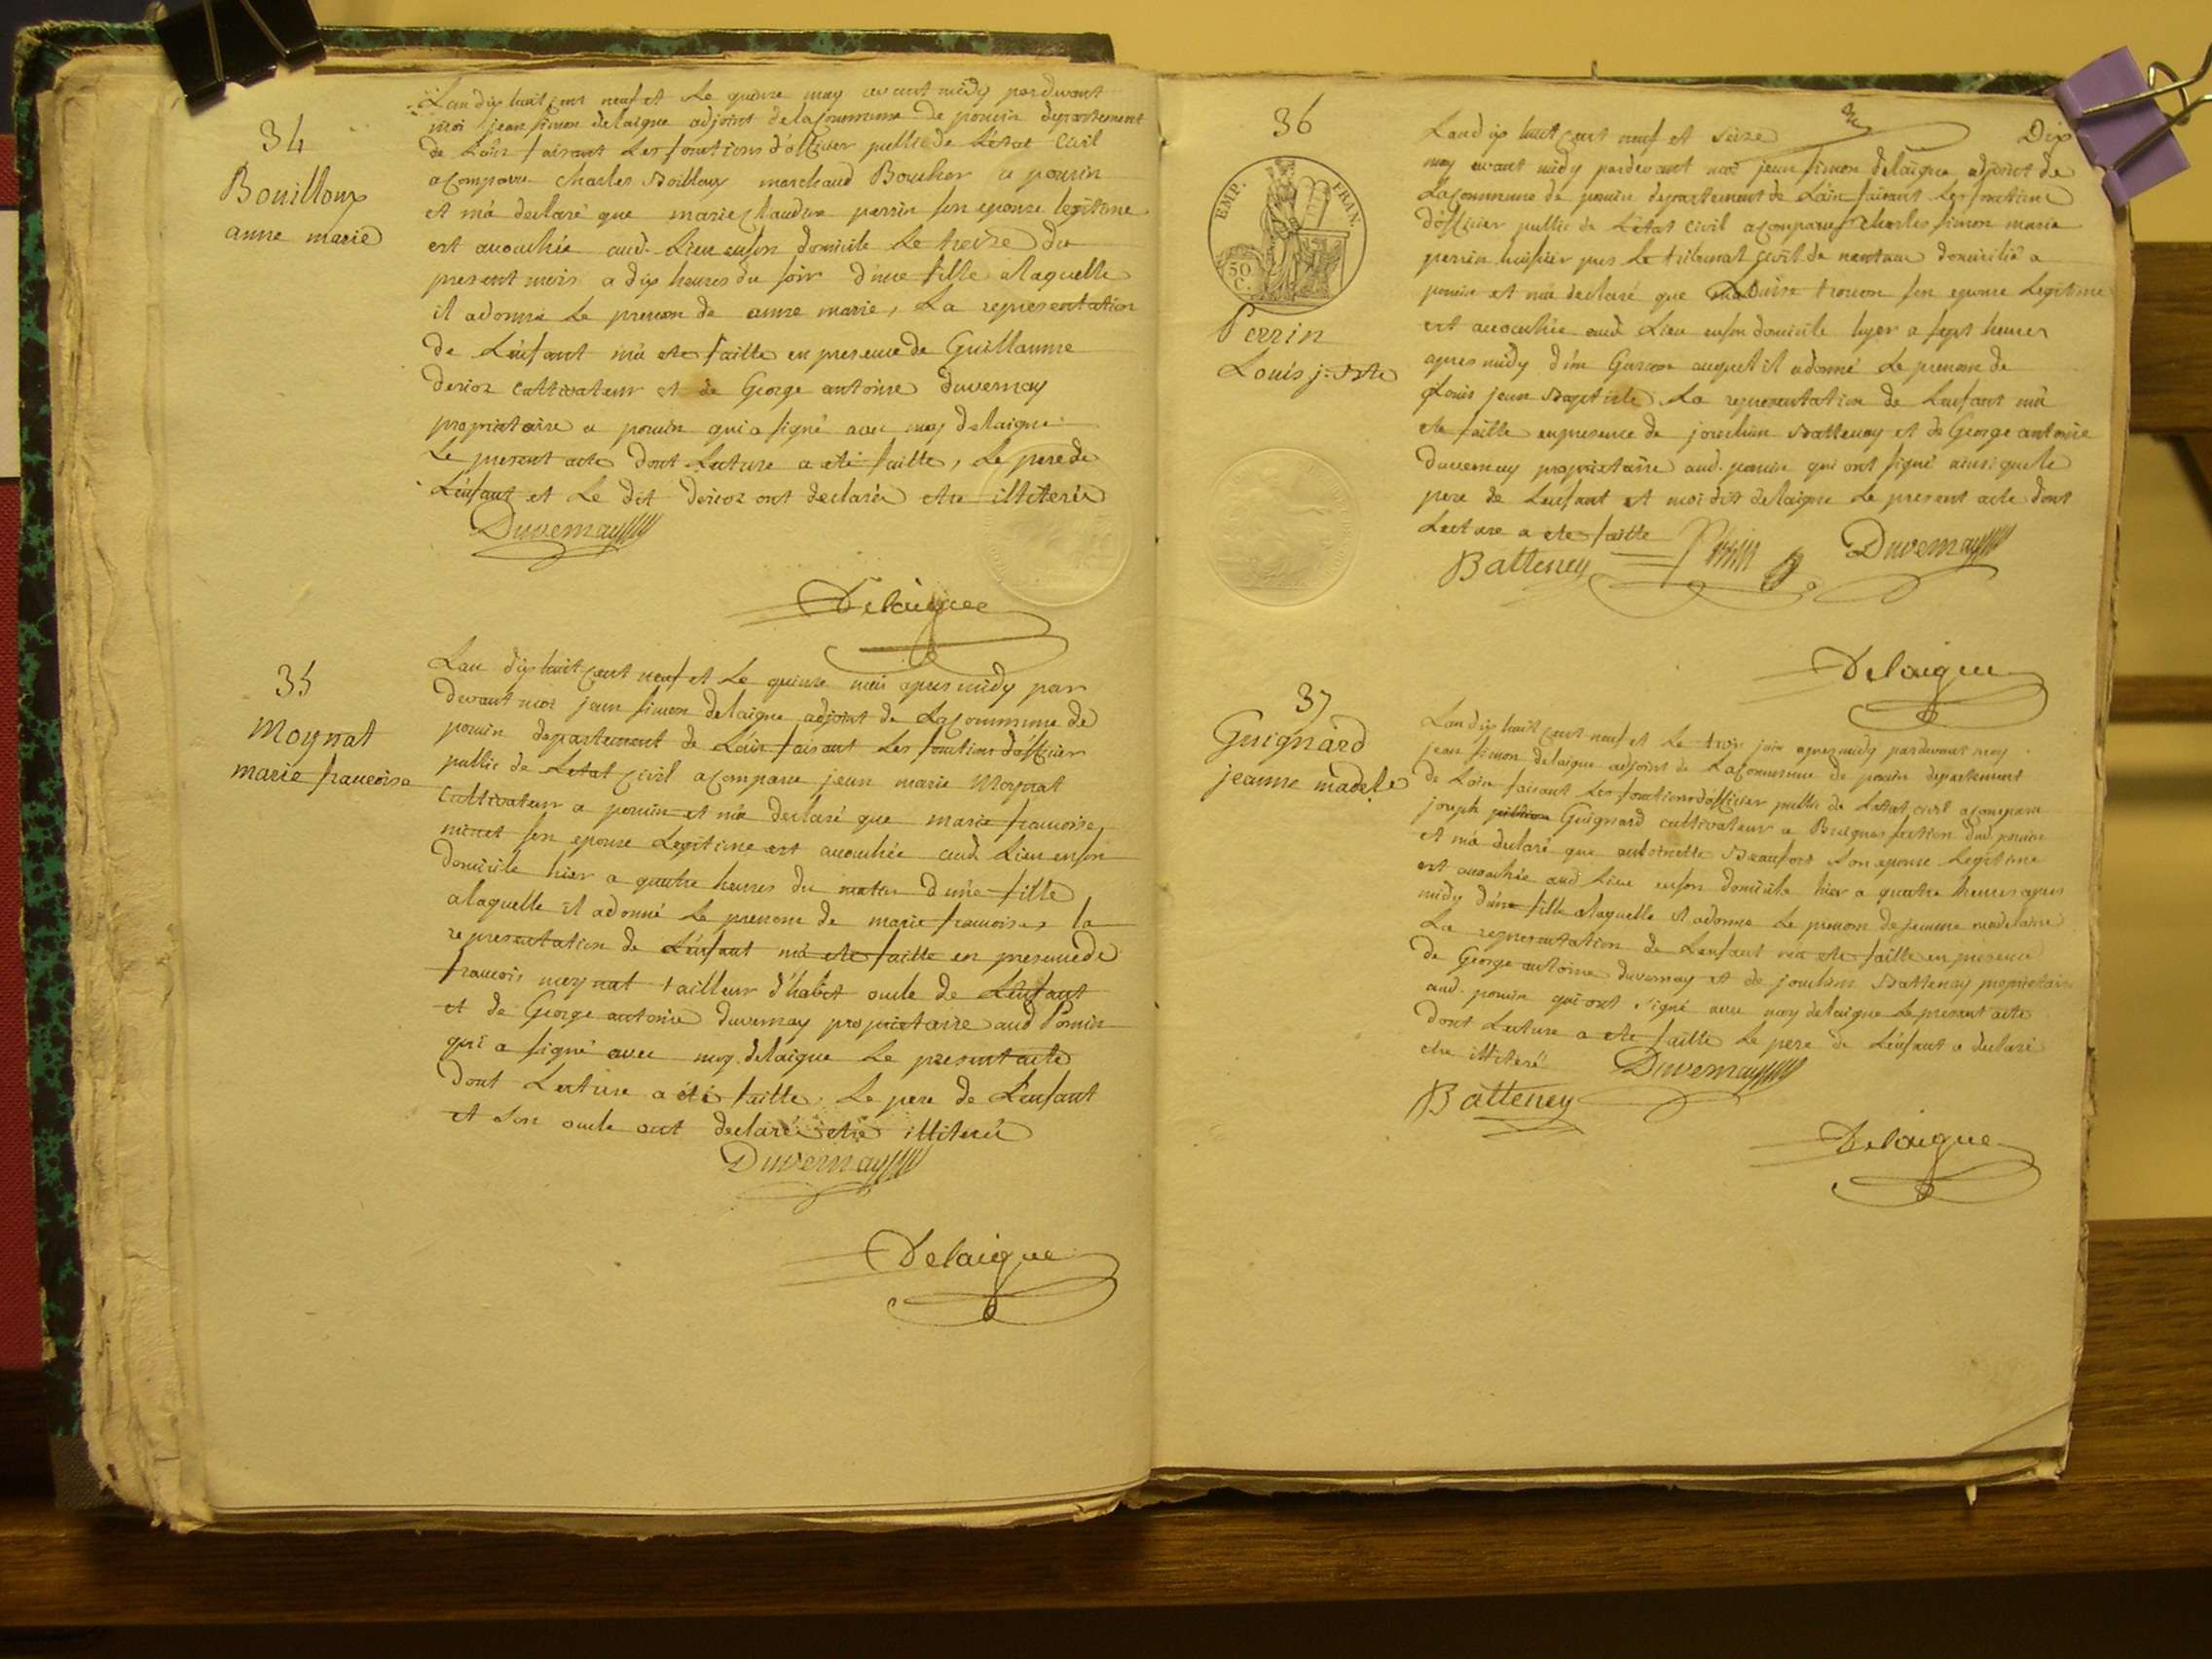 34
Bouilloux
anne marie
Lan dix huit cent neuf et le quinze may avant midy pardevant
moi jean simon delaigue adjoint de la commune de poncin departement
de Lain faisant les fonctions d'officier public de l'etat civil
a comparu charles Boilloux marchand Boucher a poncin
et m'a declaré que marie claudine perrin son epouse legitime
est accouchée aud. Lieu en son domicile le treize du
present mois a dix heures du soir d'une fille a laquelle
il a donné le prenom de anne marie, La representation
de L'enfant m'a ete faitte en presence de Guillaume
derioz cultivateur et de George antoine duvernay
proprietaire a poncin qui a signé avec moy delaigue
Le present acte dont Lecture a eté faitte, Le pere de
L'enfant et Le dit derioz ont declarés etre illiterés
Duvernay
Delaigue
35
Moynat
marie francoise
Lan dix huit cent neuf et Le quinze mai apres midy par
devant moi jean simon delaigue adjoint de La commune de
poncin departement de Lain faisant Les fonctions d'officier
public de Letat civil a comparu jean marie Moynat
cultivateur a poncin et m'a declaré que marie francoise
son epouse Legitime est accouchée aud. Lieu en son
domicile hier a quatre heures du matin d'une fille
a laquelle il a donné le prenom de marie francoise, la
representation de L'enfant m'a ete faitte en presence de
francois moynat tailleur d'habit oncle de L'enfant
et de George antoine duvernay proprietaire aud Poncin
qui a signé avec moy delaigue Le present acte
dont Lecture a été faitte, Le pere de L'enfant
et son oncle ont declarés etre illiterés
Duvernay
Delaigue
36
EMP. FRAN.
50 C.
Perrin
Louis j. Bte
Dix
Lan dix huit cent neuf et seize
may avant midy pardevant moi jean simon delaigue adjoint de
La commune de poncin departement de Lain faisant Les fonctions
d'officier public de L'etat civil a comparu charles simon marie
perrin huissier pres Le tribunal civil de nantua domicilié a
poncin et m'a declaré que son epouse Legitime
est accouchée aud Lieu en son domicile hyer a sept heures
apres midy d'un Garcon auquel il a donné Le prenom de
Louis jean Baptiste La representation de L'enfant m'a
ete faitte en presence de joachim Battenay et de George antoine
duvernay proprietaire aud. poncin qui ont signé ainsi que le
pere de L'enfant et moi dit delaigue Le present acte dont
Lecture a ete faitte
Batteney Perrin Duvernay
Delaigue
37
Guignard
jeanne madele
Lan dix huit cent neuf et Le trois juin apres midy pardevant moy
jean simon delaigue adjoint de La commune de poncin departement
de Lain faisant Les fonctions d'officier public de Letat civil a comparu
joseph Guignard cultivateur a section dud poncin
et m'a declaré que antoinette Beaufort son epouse Legitime
est accouchée aud Lieu en son domicile hier a quatre heures apres
midy d'une fille a laquelle il a donné Le prenom de jeanne madelaine
La representation de L'enfant m'a ete faitte en presence
de George antoine duvernay et de joachim Battenay proprietaire
aud. poncin qui ont signé avec moy delaigue Le present acte
dont Lecture a ete faitte Le pere de L'enfant a declaré
etre illiteré
Duvernay
Batteney
Delaigue